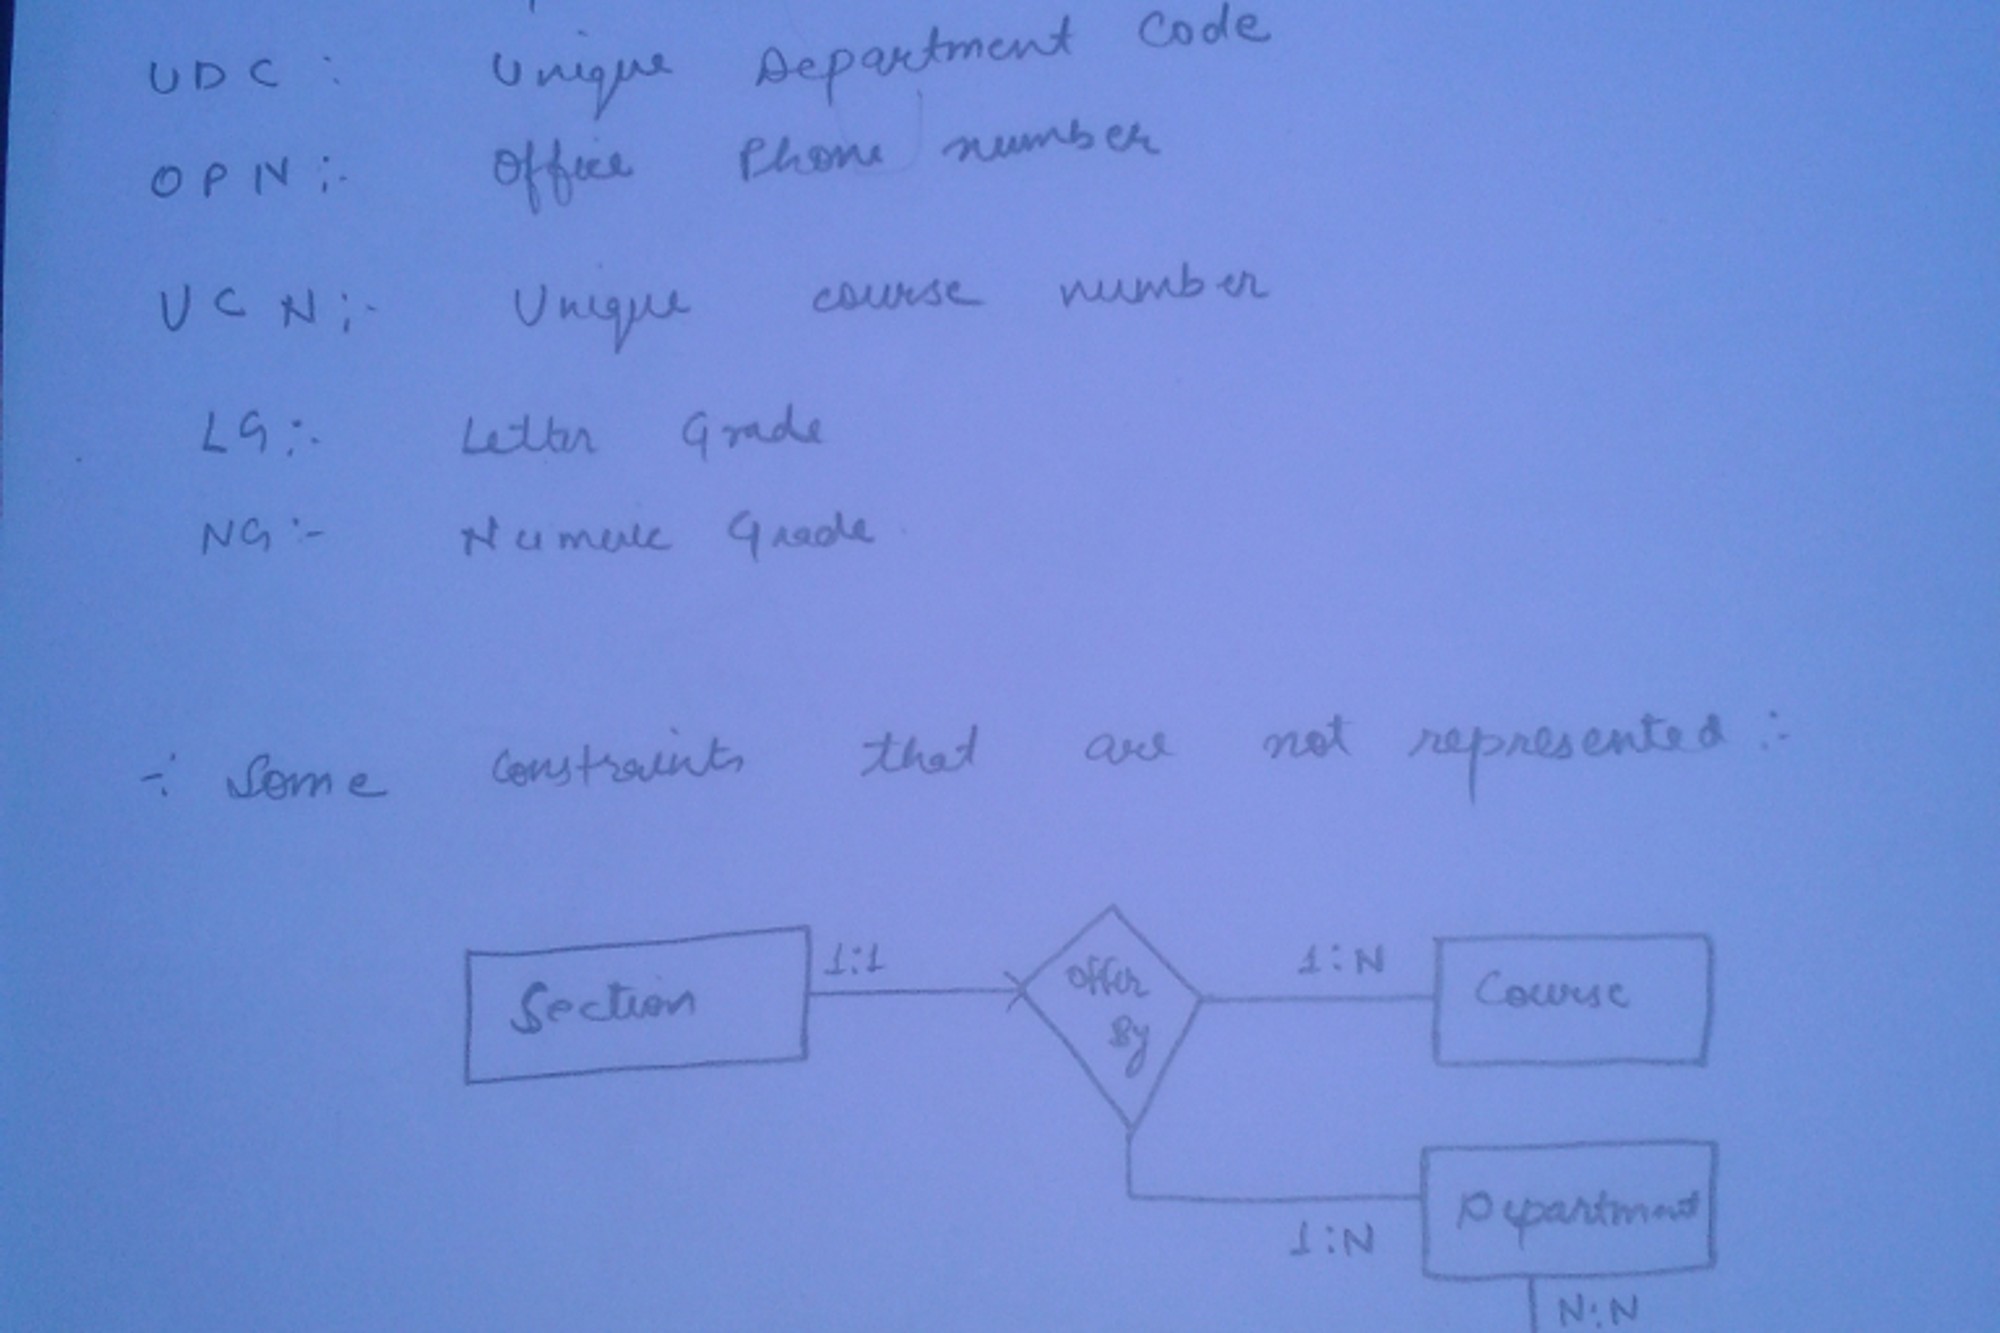 UDC : Unique Department Code
OPN :- Office Phone number
UCN :- Unique course number
LG :- Letter Grade
NG :- Numeric Grade
-: Some constraints that are not represented :-
Section 1:1 Offer By 1:N Course
Department
1:N
N:N